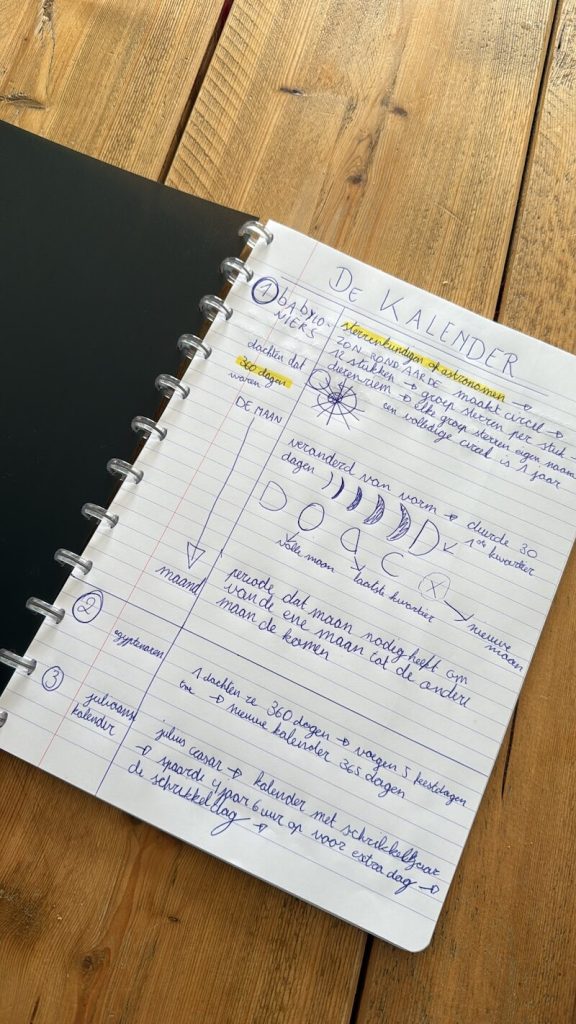 DE KALENDER
1 babylo-
NIERS
dachten dat
360 dagen
waren
sterrenkundigen of astronomen →
ZON ROND AARDE maakt circel →
12 stukken → groep sterren per stuk -
dierenriem → elke groep sterren eigen naam
een volledige circel is 1 jaar
DE MAAN
veranderd van vorm → duurde 30
dagen
1ste kwartier
volle maan
laatste kwartier
nieuwe
maan
maand
periode dat maan nodig heeft om
van de ene maan tot de andere
maan de komen
2
egyptenaren
1 dachten ze 360 dagen → voegen 5 feestdagen
toe → nieuwe kalender 365 dagen
3
juliaanse
kalender
julius ceasar → kalender met schrikkeljaar
→ spaarde 4 jaar 6 uur op voor extra dag →
de schrikkeldag